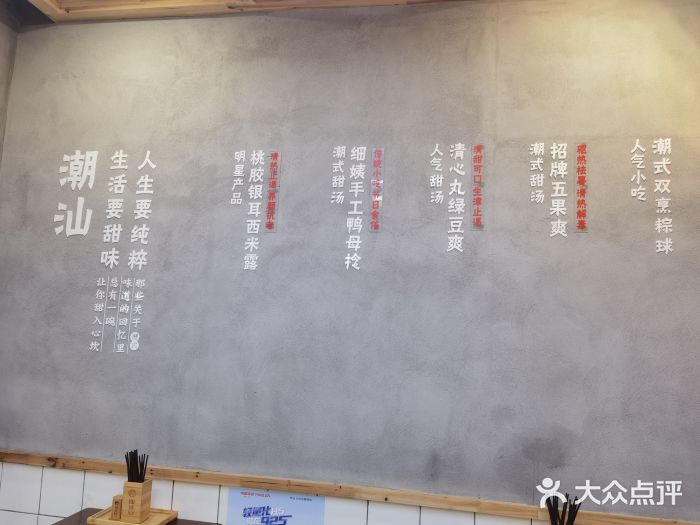 潮式双烹粽球
人气小吃
祛热祛暑清热解毒
招牌五果爽
潮式甜汤
清甜可口生津止渴
清心丸绿豆爽
人气甜汤
细姨手工鸭母捻
潮式甜汤
桃胶银耳西米露
明星产品
人生要纯粹
生活要甜味
那些关于
味道的回忆里
总有一碗
让你甜入心坎
潮汕
大众点评